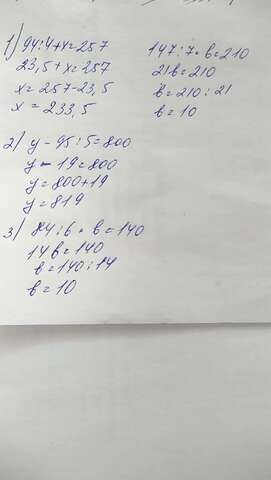 1) 94:4+x=257
23,5+x=257
x=257-23,5
x=233,5
147:7·в=210
21в=210
в=210:21
в=10
2) y-95:5=800
y-19=800
y=800+19
y=819
3) 84:6·в=140
14в=140
в=140:14
в=10